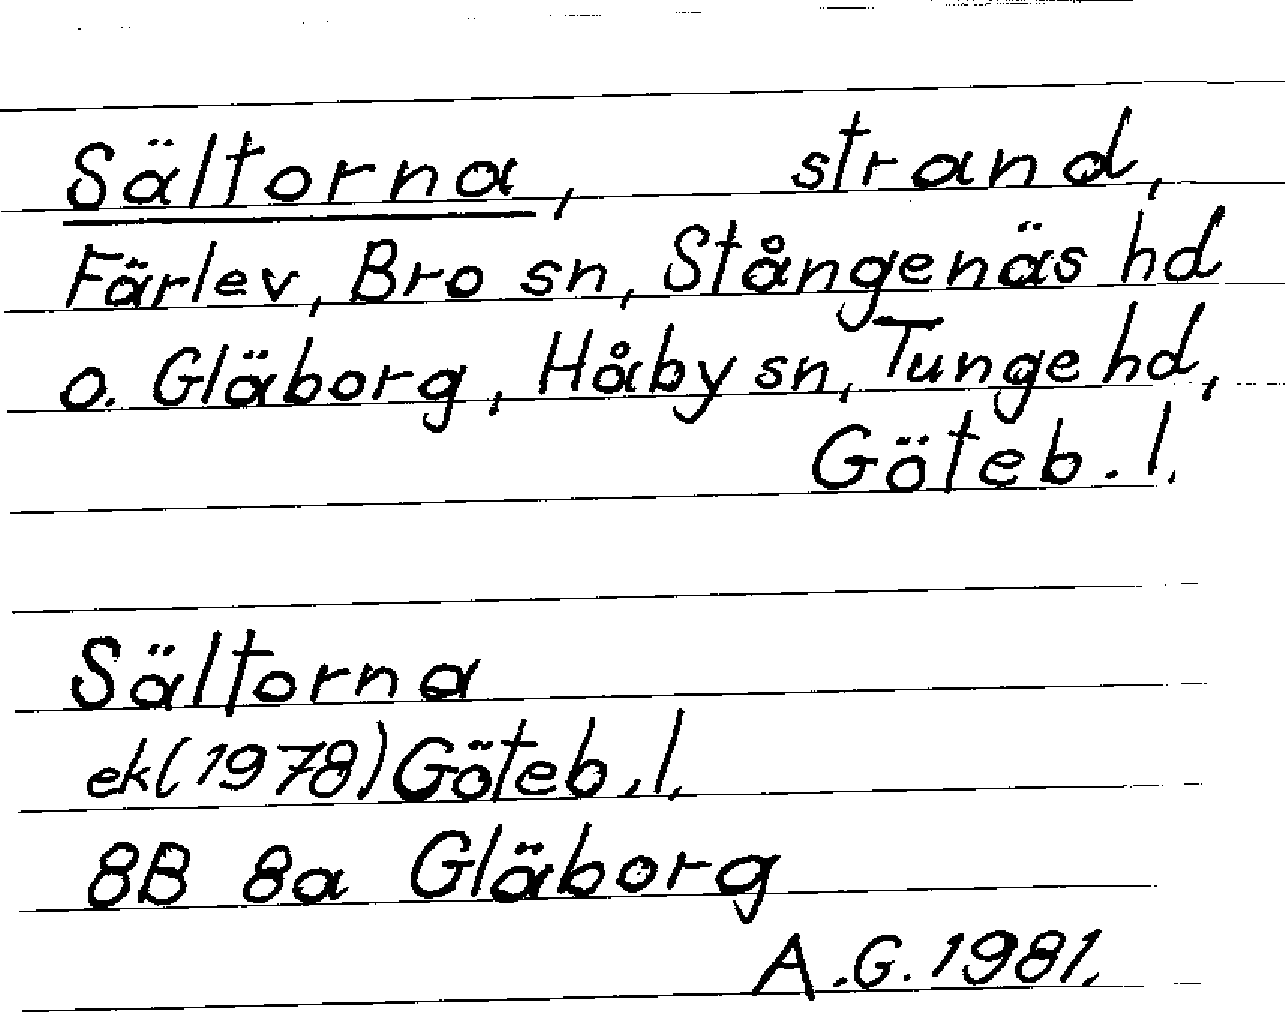 Sältorna, strand,
Färlev, Bro sn, Stångenäs hd
o. Gläborg, Håby sn, Tunge hd,
Göteb. l.
Sältorna
ek(1978) Göteb. l.
8B 8a Gläborg
A.G. 1981.